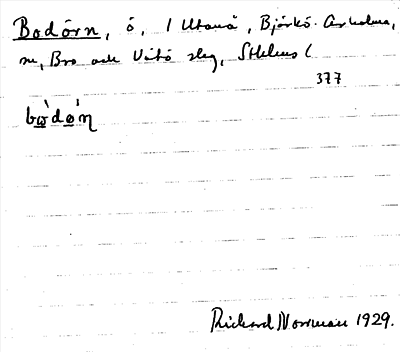 Bodörn, ö, / Utanå, Björkö-Arholma,
sn, Bro och Vätö slg, Sthlms l
377
bὼdǿn̥
Richard Norrman 1929.